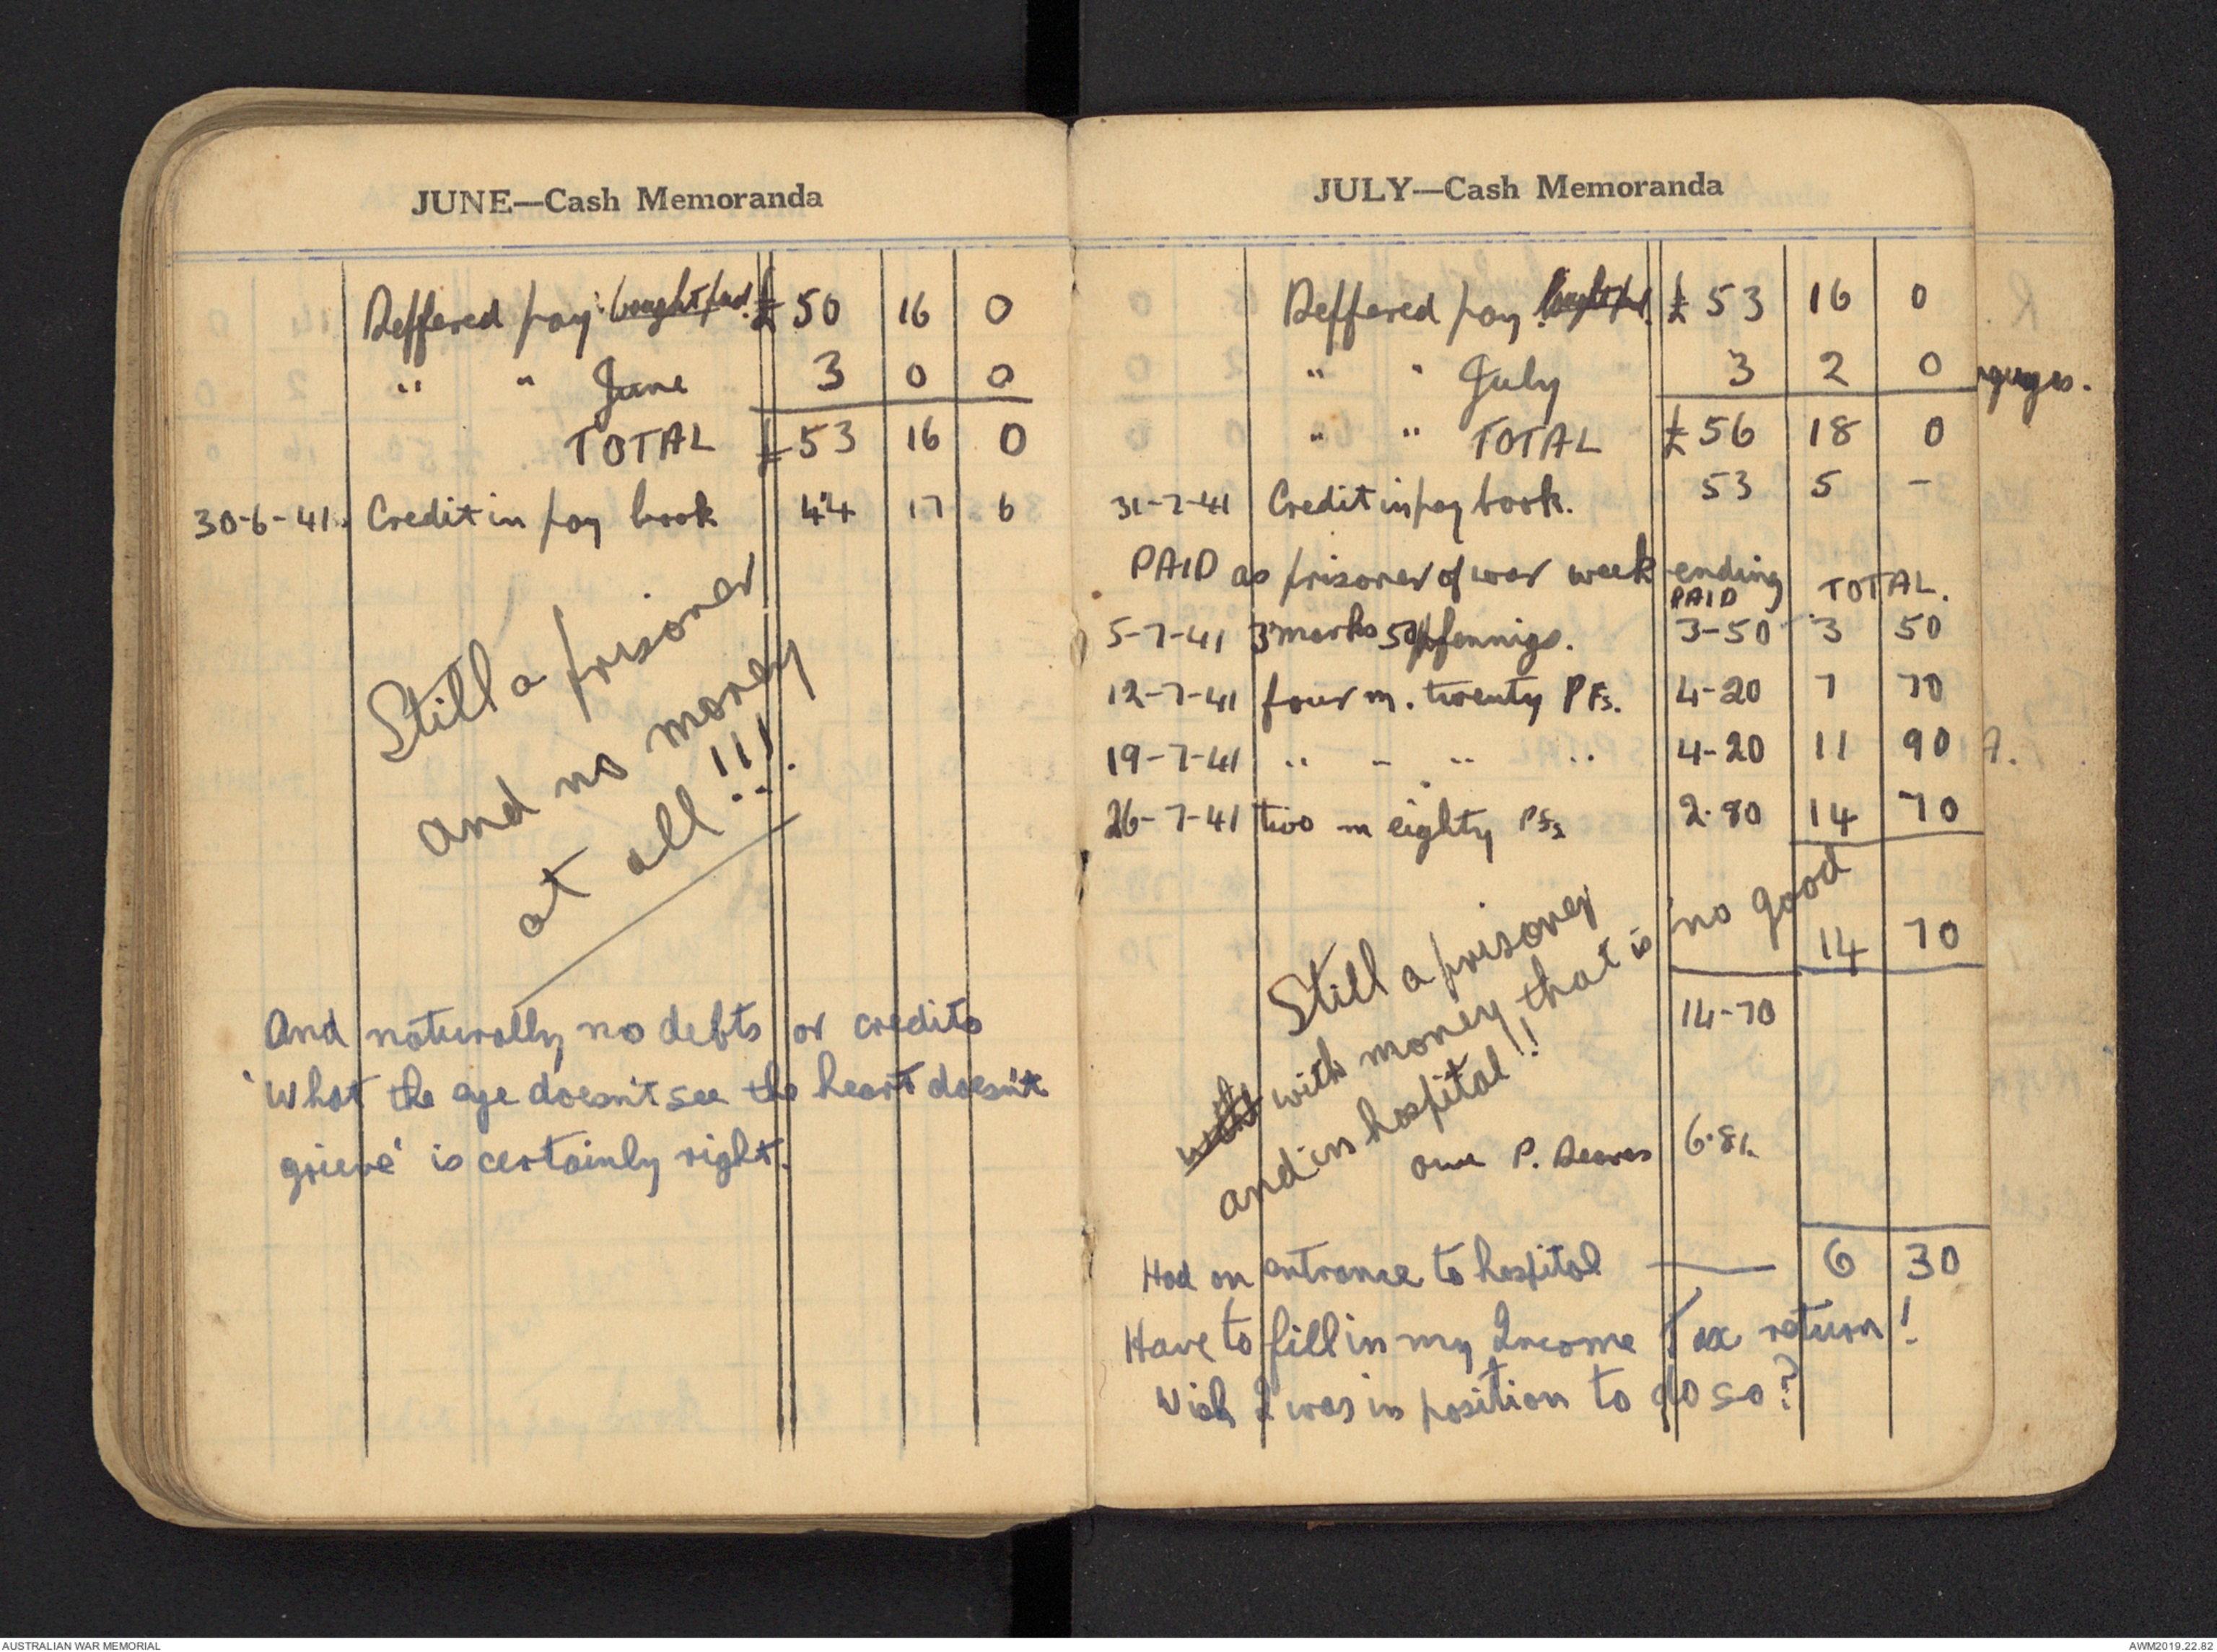 JUNE—Cash Memoranda
Deffered pay bought fwd. £ 50 16 0
" " June 3 0 0
TOTAL £ 53 16 0
30-6-41. Credit in pay book 44 17 6
Still a prisoner
and no money
at all!!!.
And naturally no debts or credits
'What the eye doesn't see the heart doesn't
grieve' is certainly right.
JULY—Cash Memoranda
Deffered pay £ 53 16 0
" " July 3 2 0
" " TOTAL £ 56 18 0
31-7-41 Credit in pay book. 53 5 -
PAID as prisoner of war week ending
PAID TOTAL.
5-7-41 3 marks 50 pfennigs. 3-50 3 50
12-7-41 four m. twenty PFs. 4-20 7 70
19-7-41 " " " " 4-20 11 90
26-7-41 two m eighty PFs 2.80 14 70
Still a prisoner
with with money that is no good
and in hospital!!
14 70
14-70
owe P. 6.
Had on entrance to hospital — 6 30
Have to fill in my Income Tax return!
Wish I was in position to do so?
AUSTRALIAN WAR MEMORIAL
AWM2019.22.82